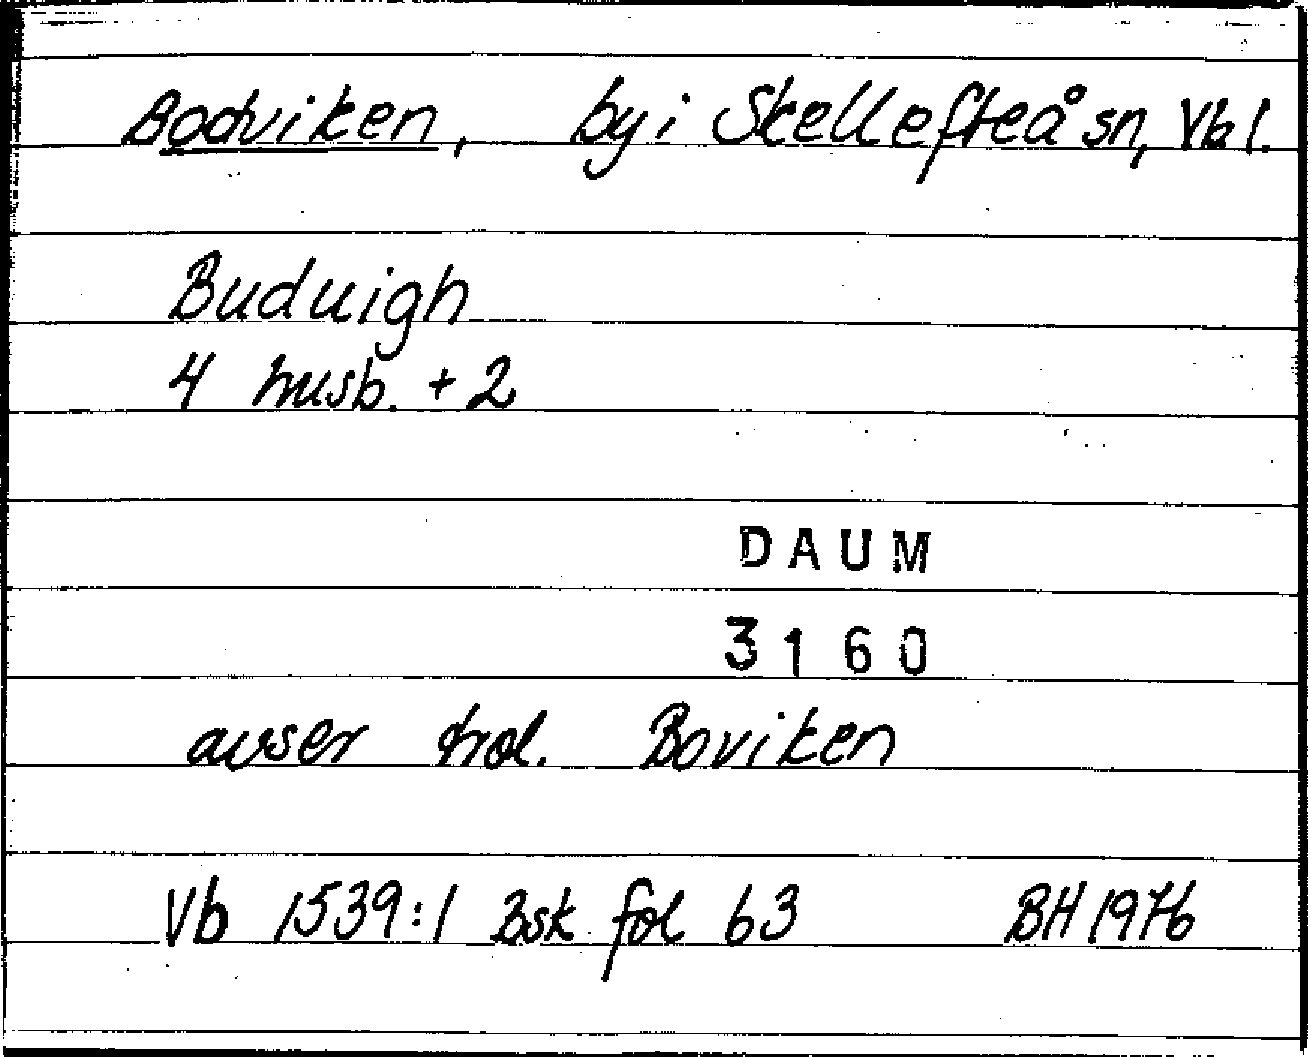 Bodviken, by i Skellefteå sn, Vb l.
Buduigh
4 husb. + 2
DAUM
3160
avser trol. Boviken
Vb 1539:1 Bsk fol 63 BH 1976